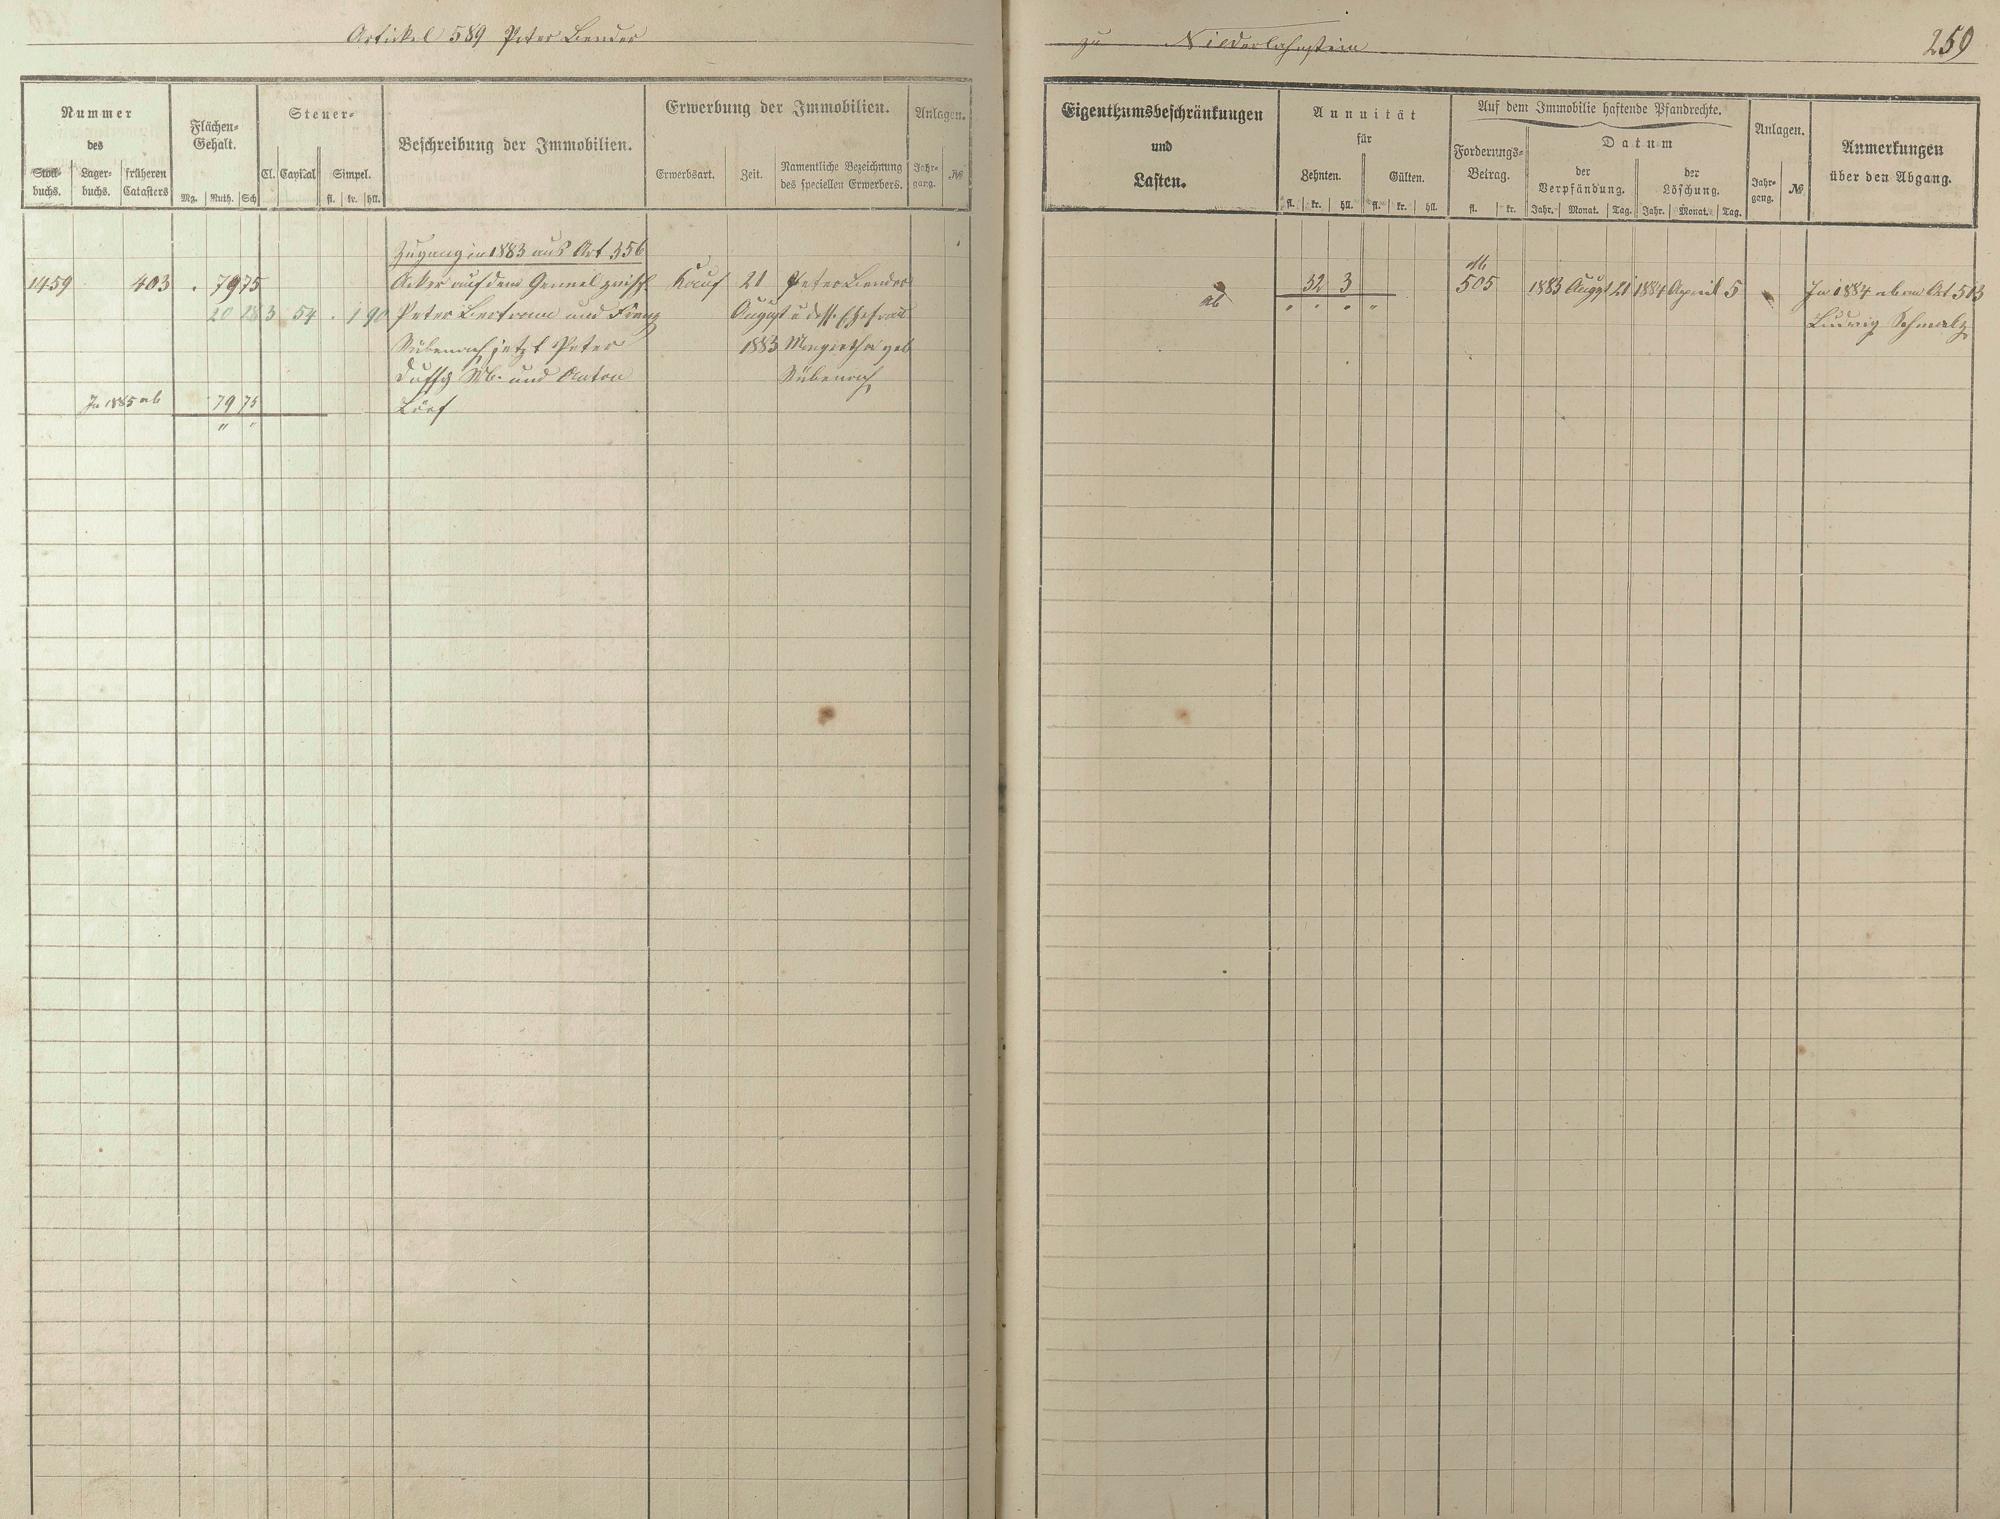 Artikel 589 Peter Bender
zu Niederlahnstein
259
Nummer
des
Stock-
buchs.
Lager-
buchs.
früheren
Catasters
Flächen-
Gehalt.
Mg. Ruth. Sch
Steuer-
Cl. Capital Simpel.
fl. kr. hll.
Beschreibung der Immobilien.
Erwerbung der Immobilien.
Erwerbsart. Zeit.
Namentliche Bezeichnung
des speciellen Erwerbers.
Anlagen.
Jahr-
gang.
№
Eigenthumsbeschränkungen
und
Lasten.
Annuität
für
Zehnten. Gülten.
fl. kr. hll. fl. kr. hll.
Auf dem Immobilie haftende Pfandrechte.
Forderungs-
Betrag.
fl. kr.
Datum
der
Verpfändung.
Jahr. Monat. Tag.
der
Löschung.
Jahr. Monat. Tag.
Anlagen.
Jahr-
gang.
№
Anmerkungen
über den Abgang.
Zugang in 1883 aus Art 356
1459 403 . 79 75 Acker auf dem zwisch Kauf 21 Peter Bender
20 28 3 54 . 1 90 Peter Bertram und Franz August u dess. Ehefrau
Rübenach jetzt Peter 1883 Margretha geb
und Anton Rübenach
In 1885 ab 79 75
" "
ab
32 3
" " " "
M
505 1883 Augst 21 1884 April 5
In 1884 ab an Art 513
Ludwig Schmalz